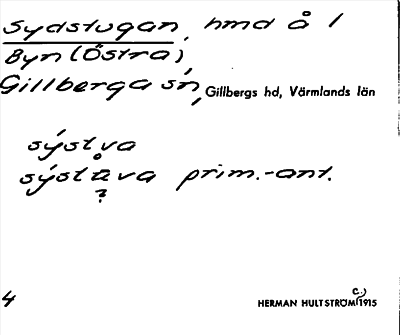 Sydstugan, hmd å 1
Byn (Östra),
Gillberga sn, Gillbergs hd, Värmlands län
sýstva
sýståva prim.-ant.
?
4
HERMAN HULTSTRÖM c.) 1915